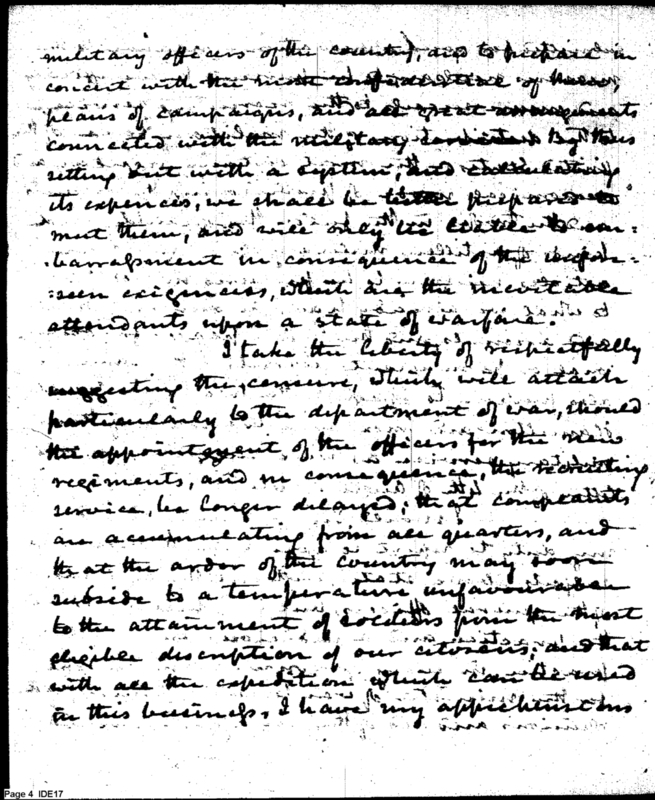 military officers of the country, and to prepare in
concert with the most confidential of them,
plans of campaigns, and all great arrangements
connected with the military service. By thus
setting out with a system, and calculating
its expences, we shall be better prepared to
meet them, and will only be liable to em-
-barrassment in consequence of the unfore-
-seen exigencies, which are the inevitable
attendants upon a state of warfare.
I take the liberty of respectfully
suggesting the censure, which will attach
particularly to the department of war, should
the appointment of the officers for the new
regiments, and in consequence, the recruiting
service, be longer delayed; that complaints
are accumulating from all quarters, and
that the ardor of the country may soon
subside to a temperature unfavourable
to the attainment of soldiers from the most
eligible description of our citizens; and that
with all the expedition which can be used
in this business, I have my apprehensions
Page 4 IDE17